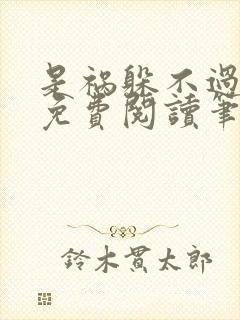 是禍躲不過
免費閱讀筆
鈴木貫太郎